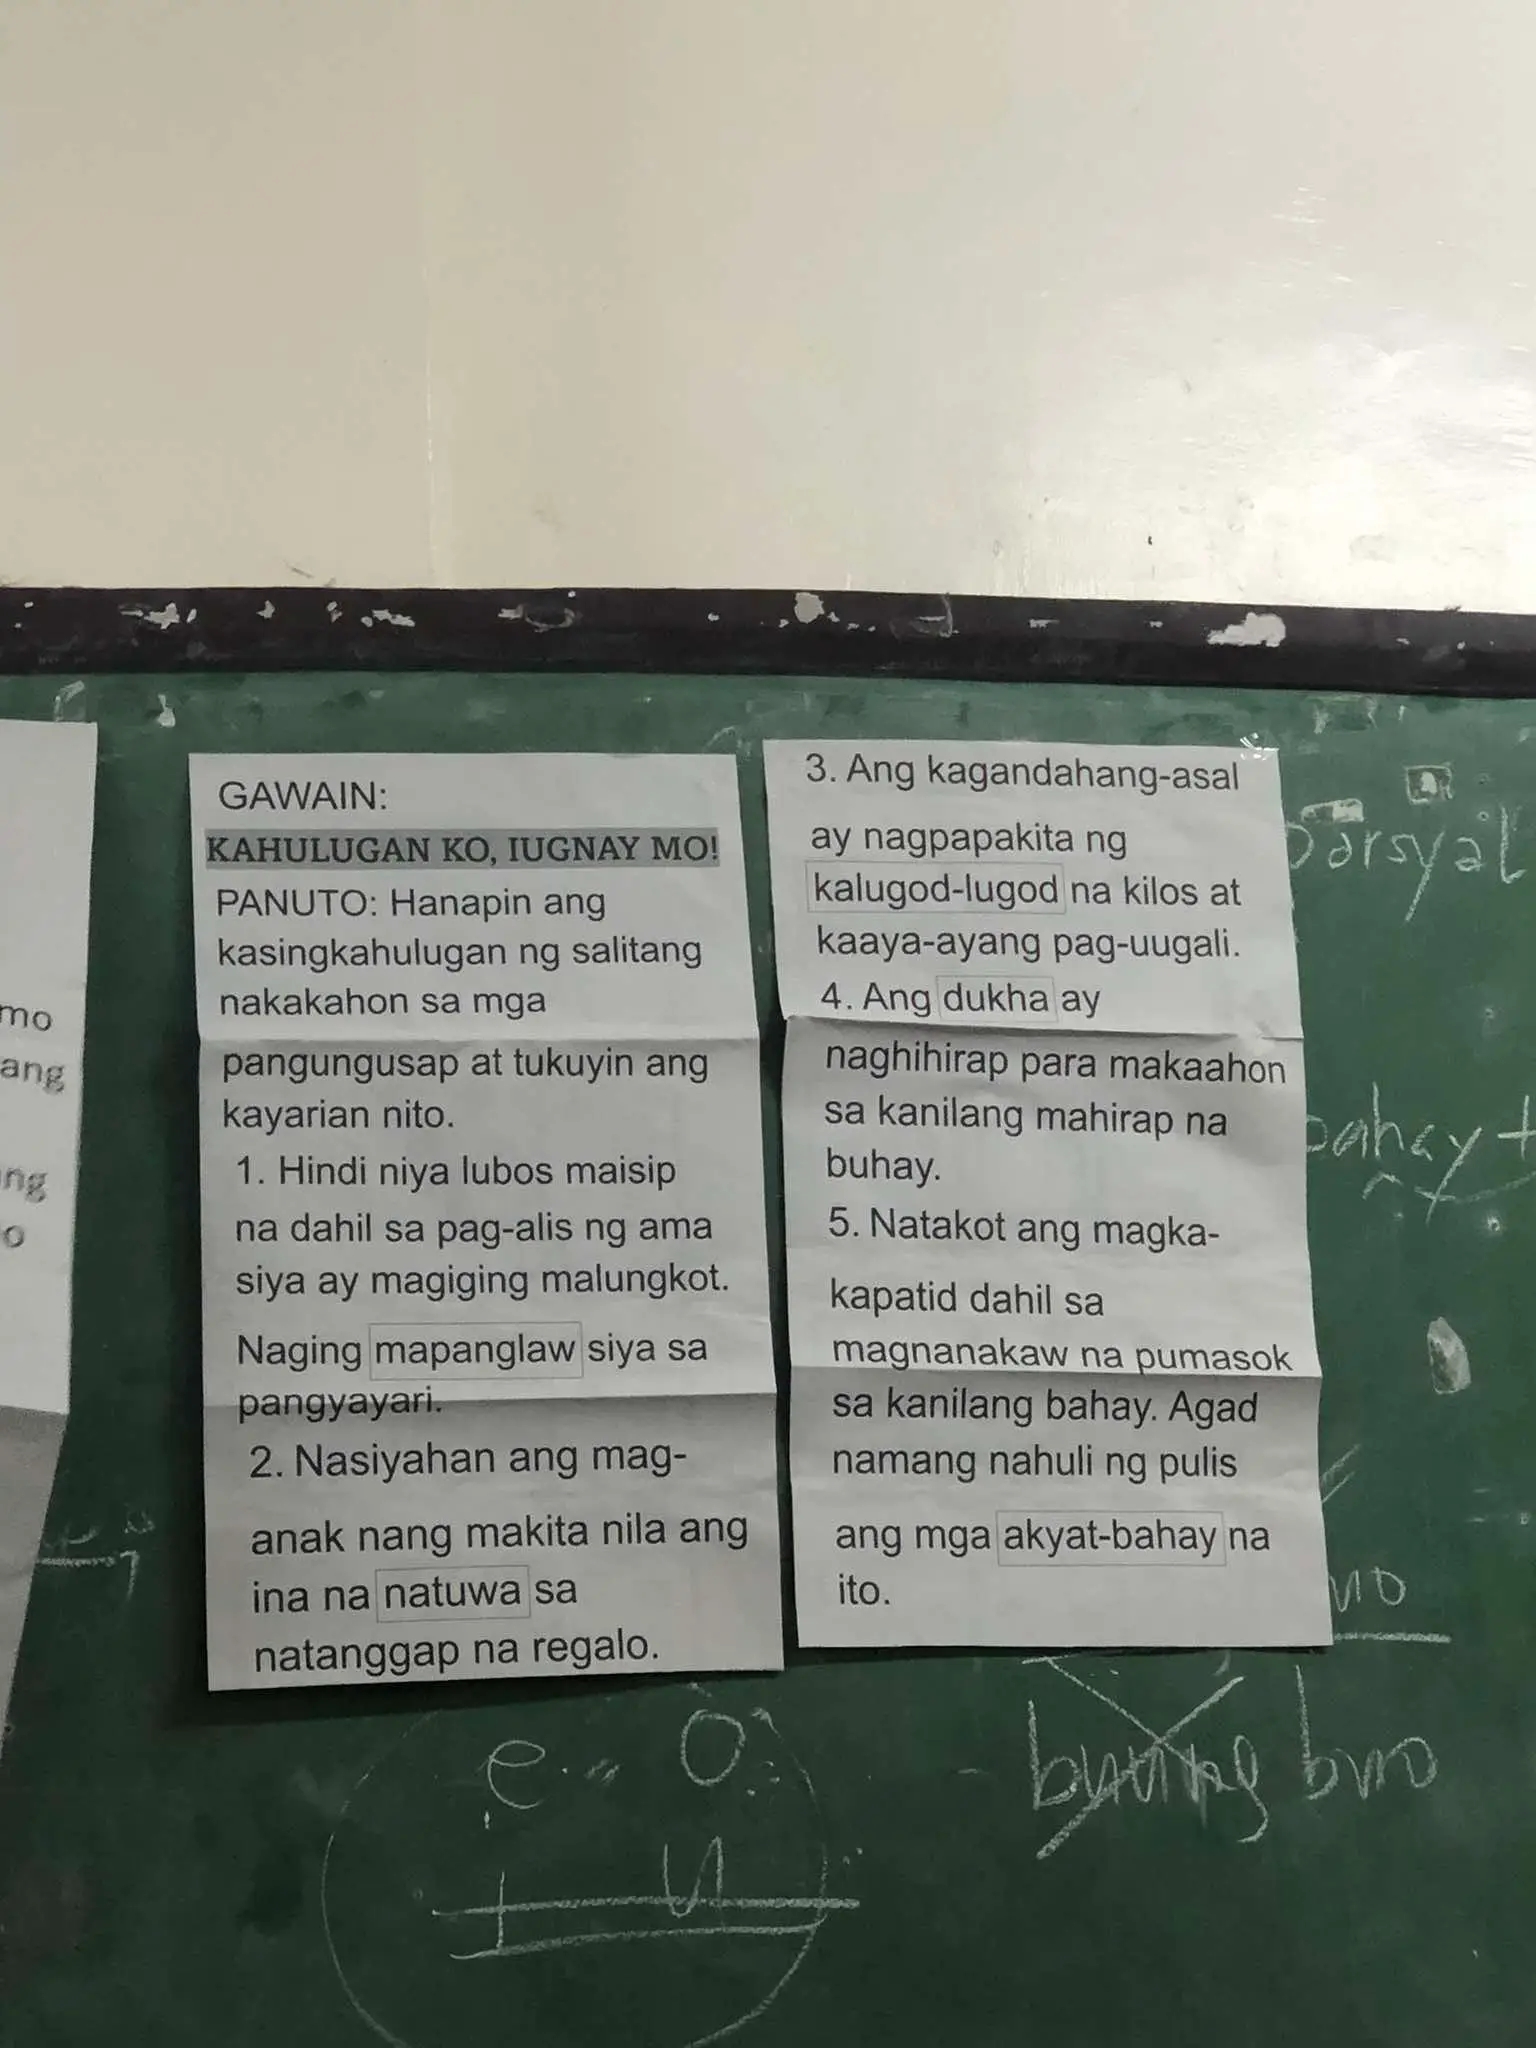 GAWAIN:
KAHULUGAN KO, IUGNAY MO!
PANUTO: Hanapin ang
kasingkahulugan ng salitang
nakakahon sa mga
pangungusap at tukuyin ang
kayarian nito.
1. Hindi niya lubos maisip
na dahil sa pag-alis ng ama
siya ay magiging malungkot.
Naging mapanglaw siya sa
pangyayari.
2. Nasiyahan ang mag-
anak nang makita nila ang
ina na natuwa sa
natanggap na regalo.
3. Ang kagandahang-asal
ay nagpapakita ng
kalugod-lugod na kilos at
kaaya-ayang pag-uugali.
4. Ang dukha ay
naghihirap para makaahon
sa kanilang mahirap na
buhay.
5. Natakot ang magka-
kapatid dahil sa
magnanakaw na pumasok
sa kanilang bahay. Agad
namang nahuli ng pulis
ang mga akyat-bahay na
ito.
mo
ang
ng
o
parsyal
bahay +
uno
buo
e
o
i
u